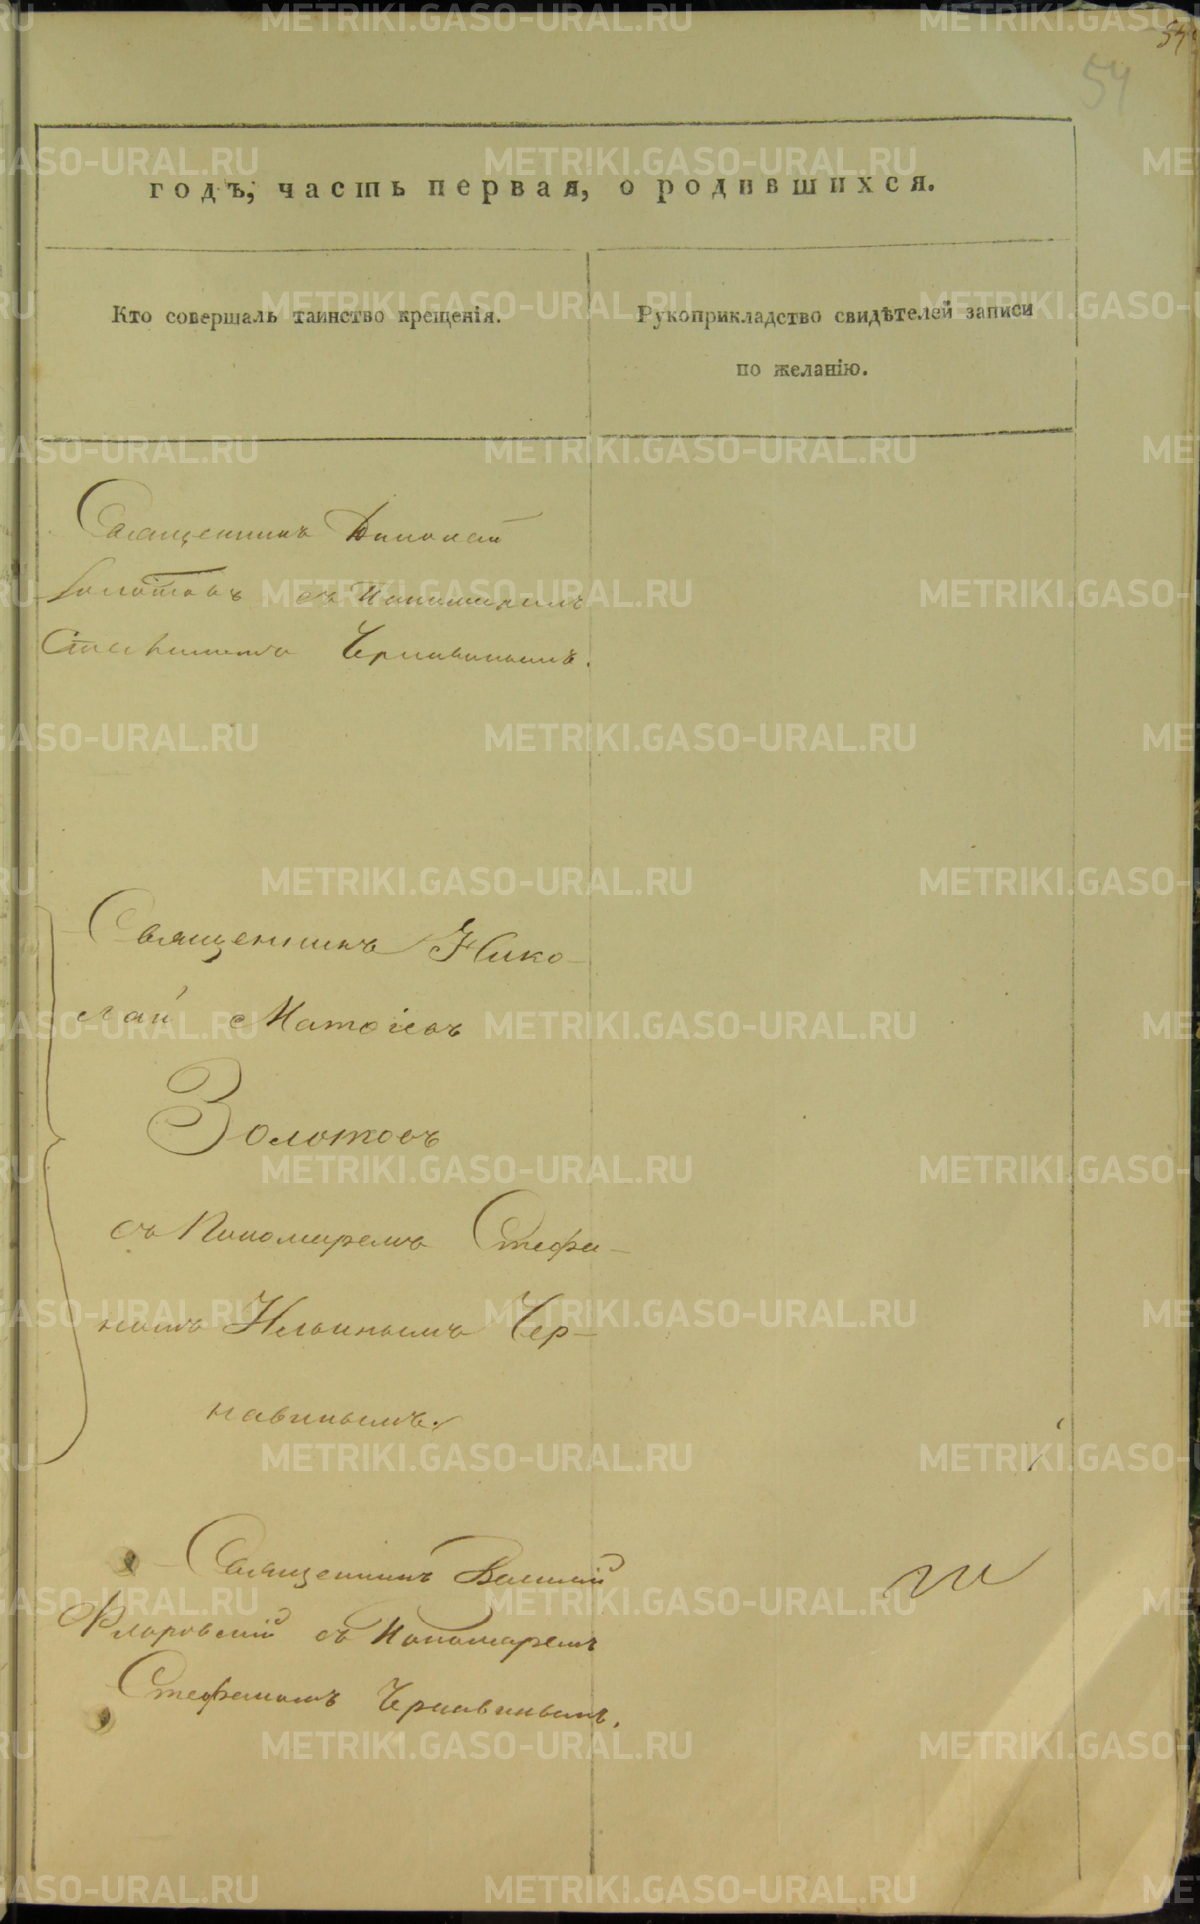 54
54
годъ, часть первая, о родившихся.
Кто совершалъ таинство крещенія.
Рукоприкладство свидѣтелей записи
по желанію.
Священникъ Николай
Золотовъ съ Пономаремъ
Стефаномъ Чернавинымъ.
Священникъ Нико-
лай Матѳіевъ
Золотовъ
съ Пономаремъ Стефа-
номъ Ильинымъ Чер-
навинымъ.
Священникъ Василій
Флоровскій съ Пономаремъ
Стефаномъ Чернавинымъ.
METRIKI.GASO-URAL.RU